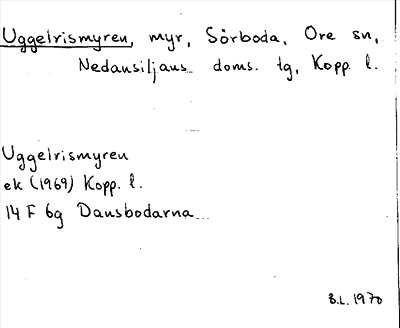 Uggelrismyren, myr, Sörboda, Ore sn,
Nedansiljans doms. tg, Kopp. l.
Uggelrismyren
ek (1969) Kopp. l.
14 F 6g Dansbodarna
B.L. 1970